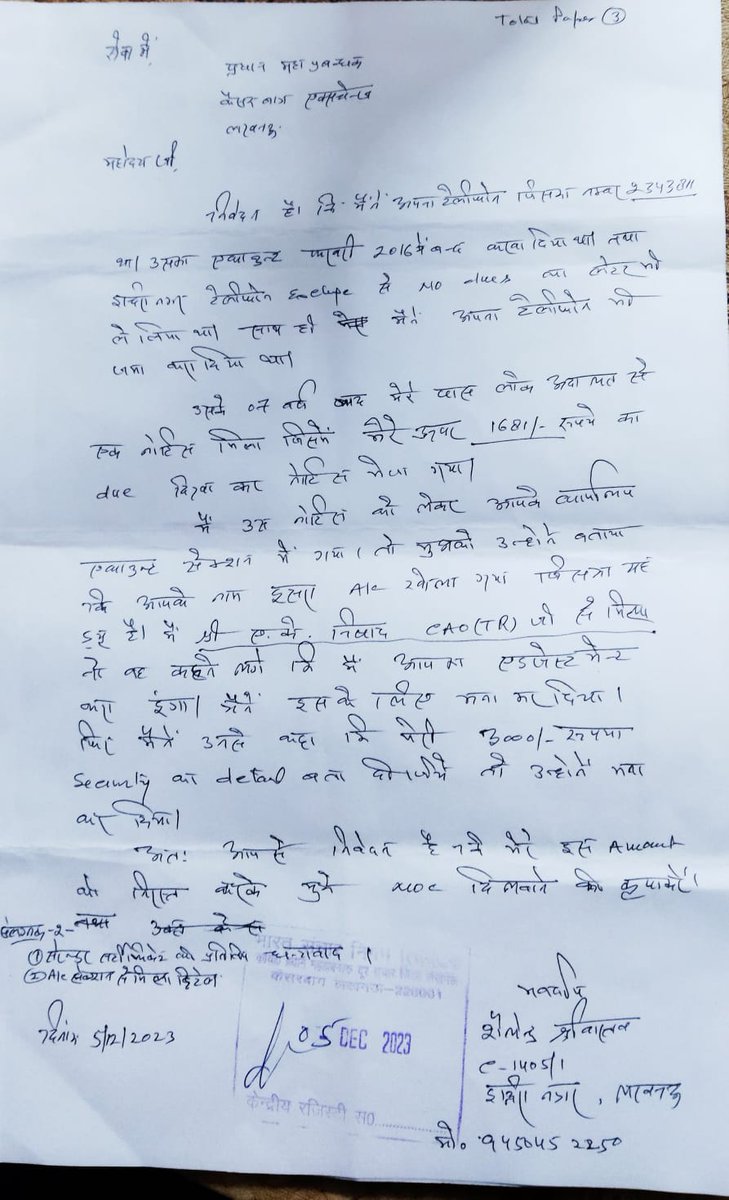 Total Paper ③
सेवा में,
प्रधान महा प्रबन्धक
कैसर बाग एक्सचेन्ज
लखनऊ
महोदय जी,
निवेदन है। कि मैंने अपना टेलीफोन जिसका नम्बर 2343811
था। उसका एकाउन्ट फरवरी 2016 में बन्द करवा दिया था। तथा
इन्दिरा नगर टेलीफोन से NO dues का लेटर भी
ले लिया था। साथ ही मैंने अपना टेलीफोन भी
जमा करा दिया था।
उसके 07 वर्ष बाद मेरे पास लोक अदालत से
एक नोटिस मिला जिसमें मेरे ऊपर 1681/- रूपये का
due दिखा कर नोटिस भेजा गया।
मैं उस नोटिस को लेकर आपके
एकाउन्ट सेक्शन में गया। तो मुझको उन्होंने बताया
कि आपके नाम दूसरा A/c खोला गया जिसका यह
है। मैं श्री ए. के. निषाद CAO(TR) जी से मिला
तो वह कहने लगे कि मैं आपका एडजेस्टमेन्ट
करा दूंगा। मैंने इसके लिए मना कर दिया।
फिर मैंने उनसे कहा कि मेरी 3000/- रूपया
Security का detail बता दीजिये तो उन्होंने मना
कर दिया।
अतः आपसे निवेदन है कि मेरे इस Amount
को निरस्त करके मुझे NOC दिलवाने की कृपा करें।
संलग्नक-2- तथा
① सरेन्डर सर्टीफिकेट की प्रतिलिपि धन्यवाद।
② A/c सेक्शन से मिला डिटेल
भारत संचार निगम
कैसरबाग लखनऊ-226001
भवदीय
शैलेन्द्र श्रीवास्तव
C-1405/1
इन्दिरा नगर, लखनऊ
मो० 9450452250
दिनांक 5/12/2023
05 DEC 2023
केन्द्रीय रजिस्ट्री स0